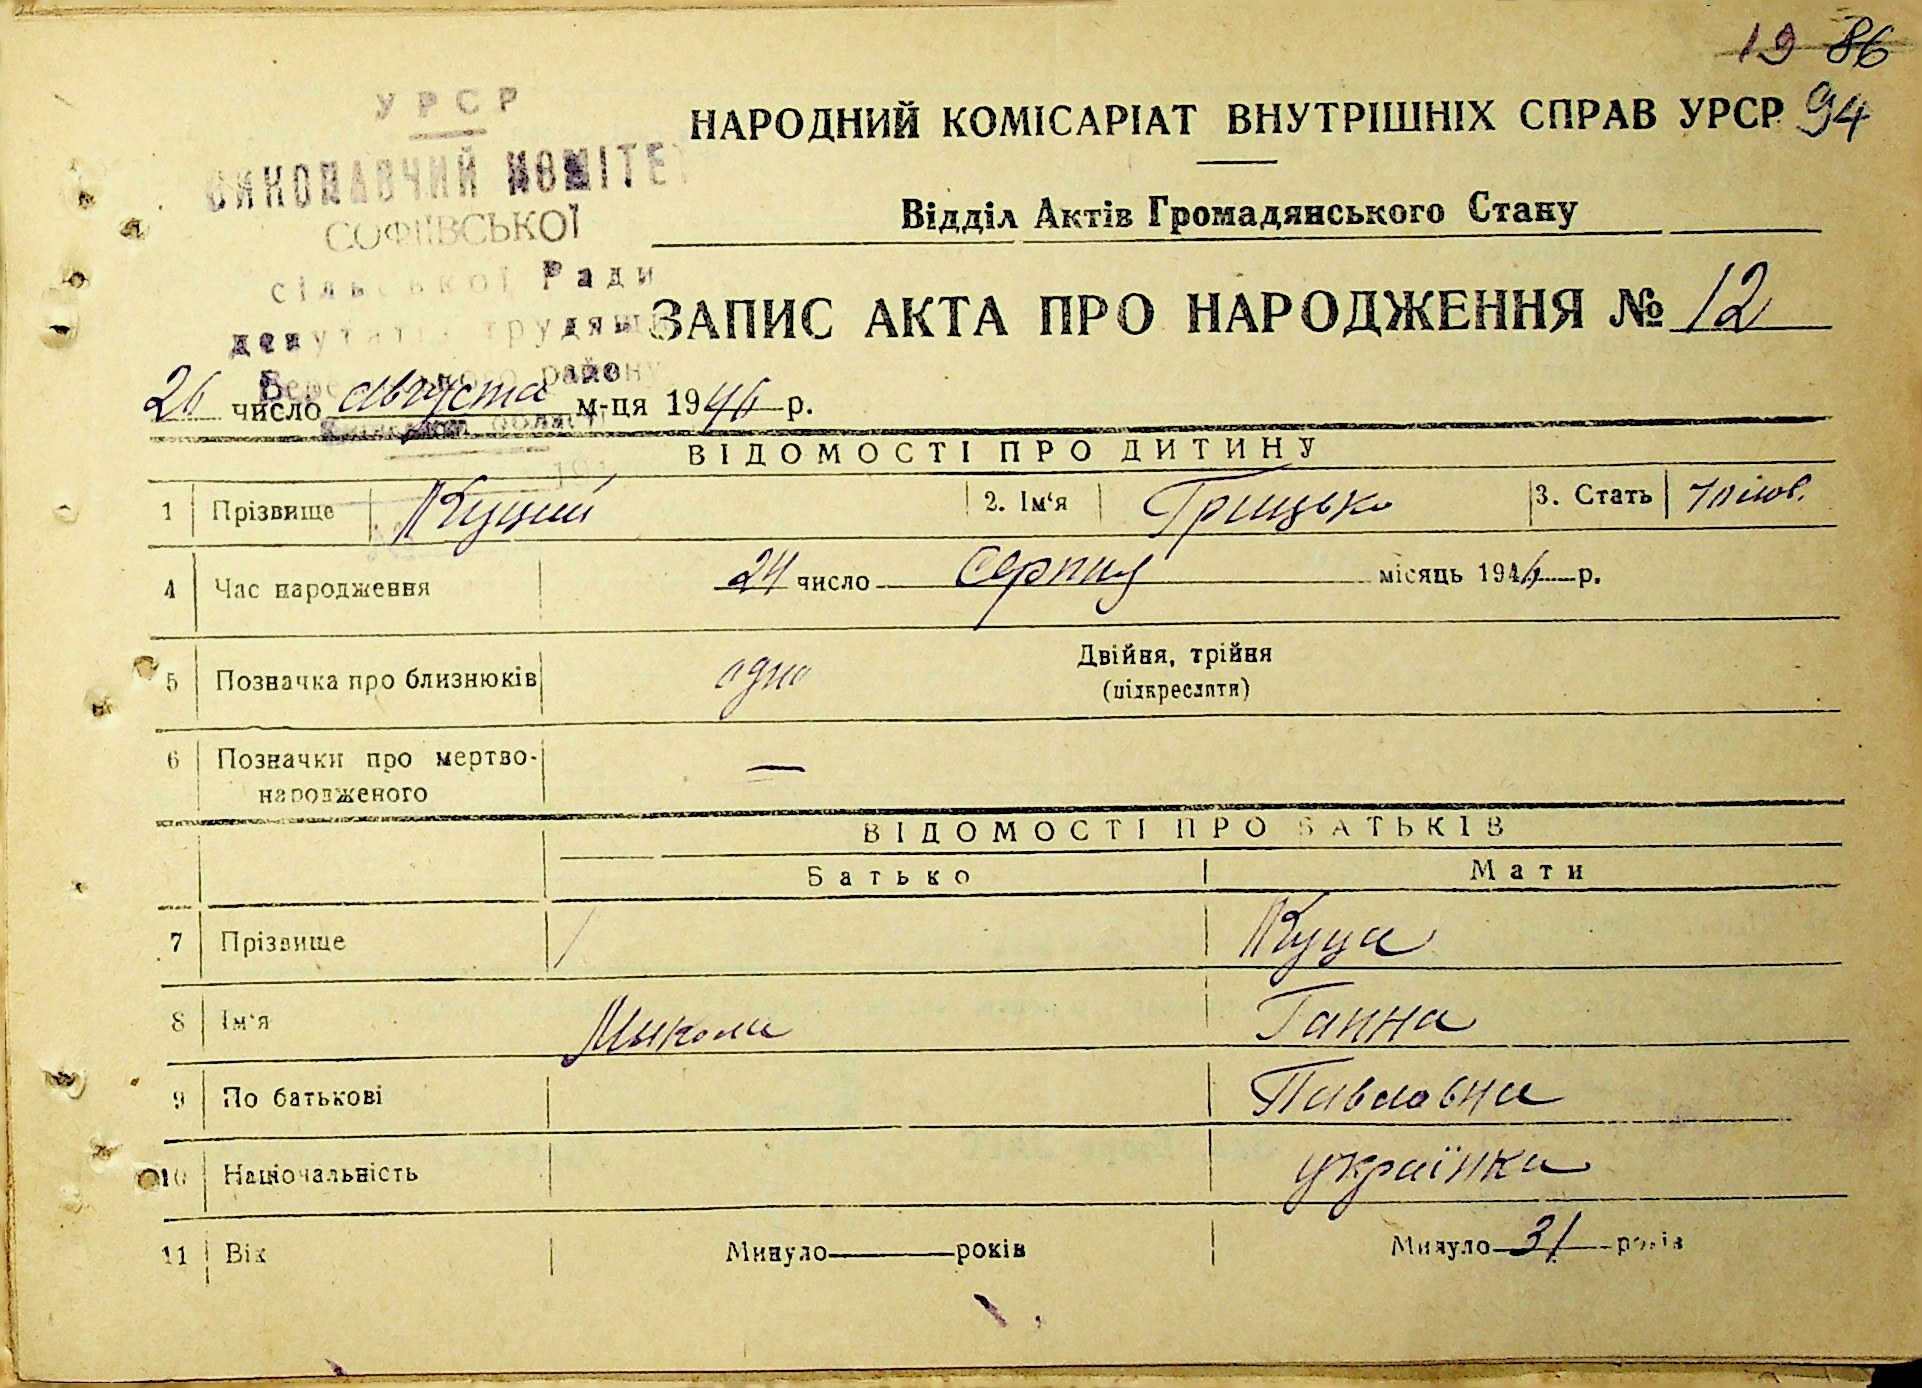 19 86
94
УРСР
ВИКОНАВЧИЙ КОМІТЕТ
СОФІЇВСЬКОЇ
сільської Ради
депутатів трудящ
району
області
НАРОДНИЙ КОМІСАРІАТ ВНУТРІШНІХ СПРАВ УРСР
Відділ Актів Громадянського Стану
ЗАПИС АКТА ПРО НАРОДЖЕННЯ № 12
26 число августа м-ця 1946 р.
ВІДОМОСТІ ПРО ДИТИНУ
1 Прізвище Куций 2. Ім'я Грицько 3. Стать чолов.
4 Час народження 24 число серпня місяць 1946 р.
5 Позначка про близнюків одно Двійня, трійня
(підкреслити)
6 Позначки про мертво-
народженого —
ВІДОМОСТІ ПРО БАТЬКІВ
Батько Мати
7 Прізвище / Куца
8 Ім'я Микола Ганна
9 По батькові Павловна
10 Національність українка
11 Вік Минуло років Минуло 31 років